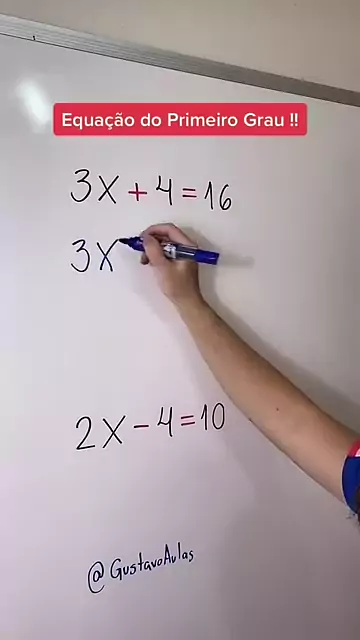 Equação do Primeiro Grau !!
3x + 4 = 16
3x
2x - 4 = 10
@GustavoAulas